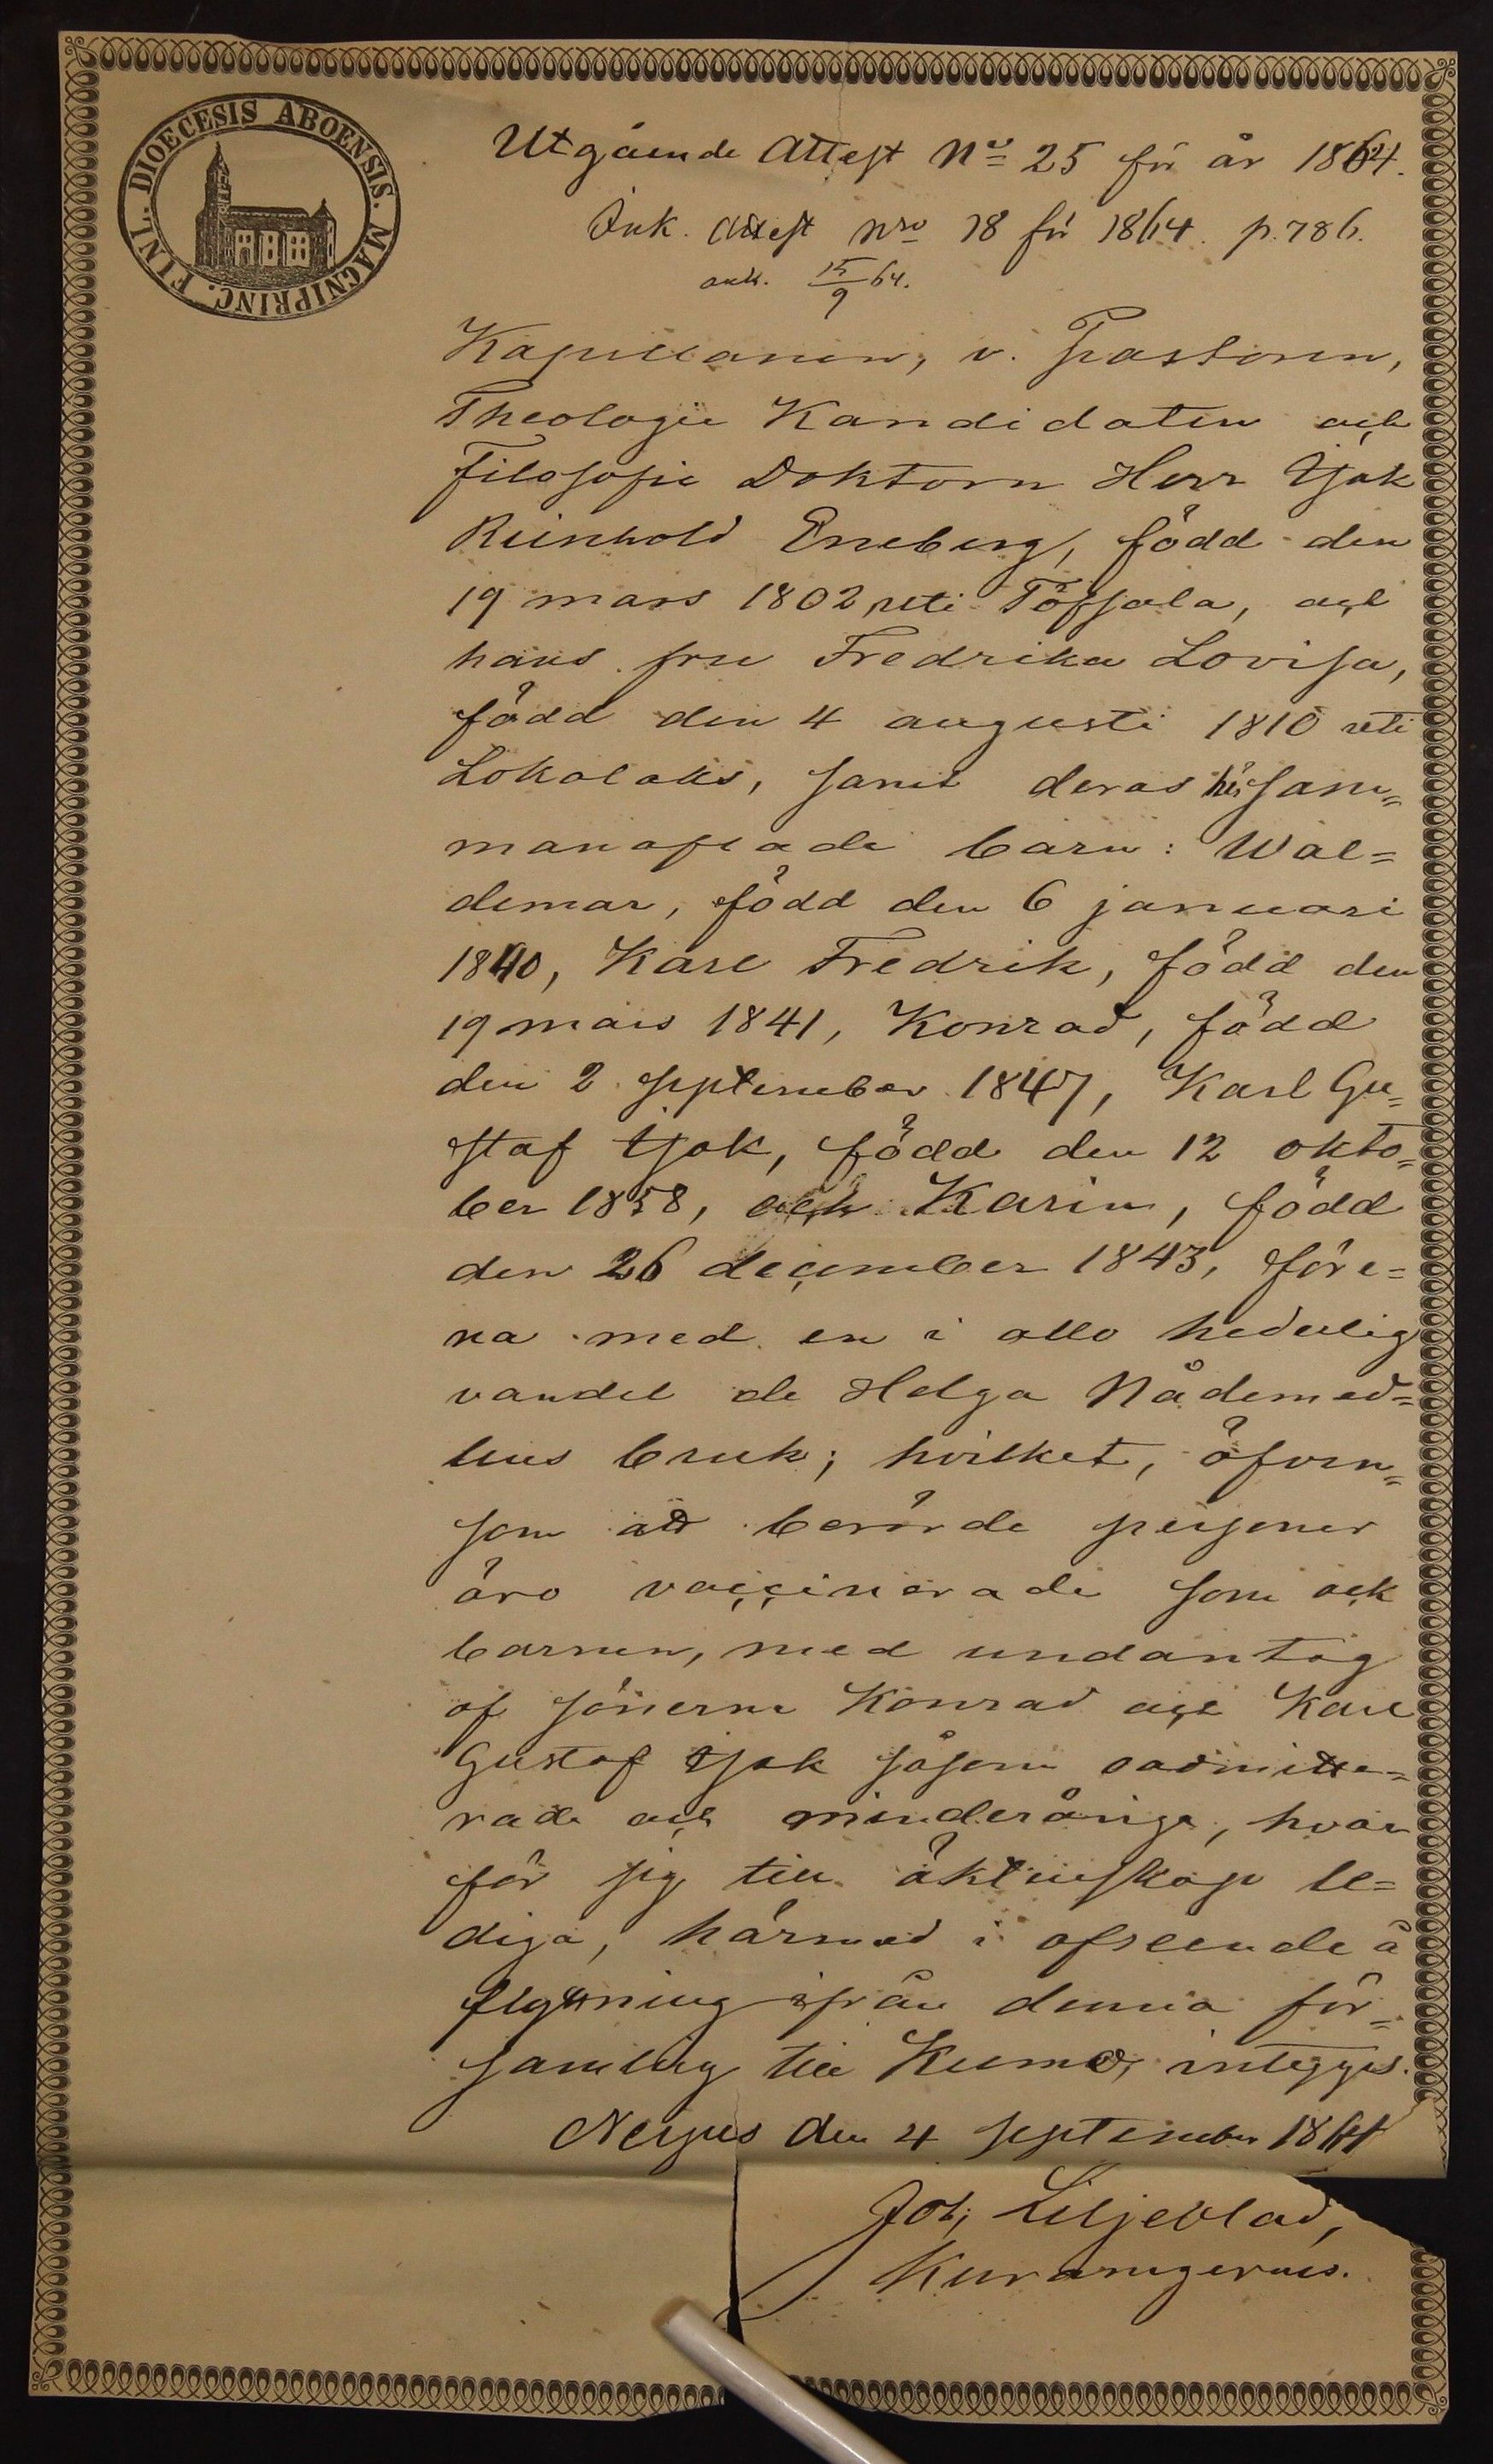 DIOECESIS ABOENSIS. MAGNIPRINC. FINL.
Utgående Attest No 25 för år 1864.
Ink. Attest Nro 18 för 1864. p. 786.
ank. 15/9 64.
Kapellanen, v. Pastorn,
Theologie Kandidaten och
Filosofie Doktorn Herr Isak
Reinhold Eneberg, född den
19 mars 1802 uti Töfsala, och
hans fru Fredrika Lovisa,
född den 4 augusti 1810 uti
Lokalaks, samt deras här sam=
manaflade barn: Wal=
demar, född den 6 januari
1840, Karl Fredrik, född den
19 mars 1841, Konrad, född
den 2 september 1847, Karl Gu=
staf Isak, född den 12 okto=
ber 1858, och Karin, född
den 26 december 1843, före=
na med en i allo hederlig
vandel de Helga Nådemed=
lens bruk; hvilket, äfven=
som att berörde personer
äro vaccinerade som ock
barnen, med undantag
af sönerna Konrad och Karl
Gustaf Isak såsom oadmitte=
rade och minderåriga, hvar
för sig till äktenskap le=
diga, härmed i afseende å
flyttning ifrån denna för=
samling till Kumo, intygas.
Merjus den 4 september 1864
Joh. Liljeblad,
Kuramgerens.